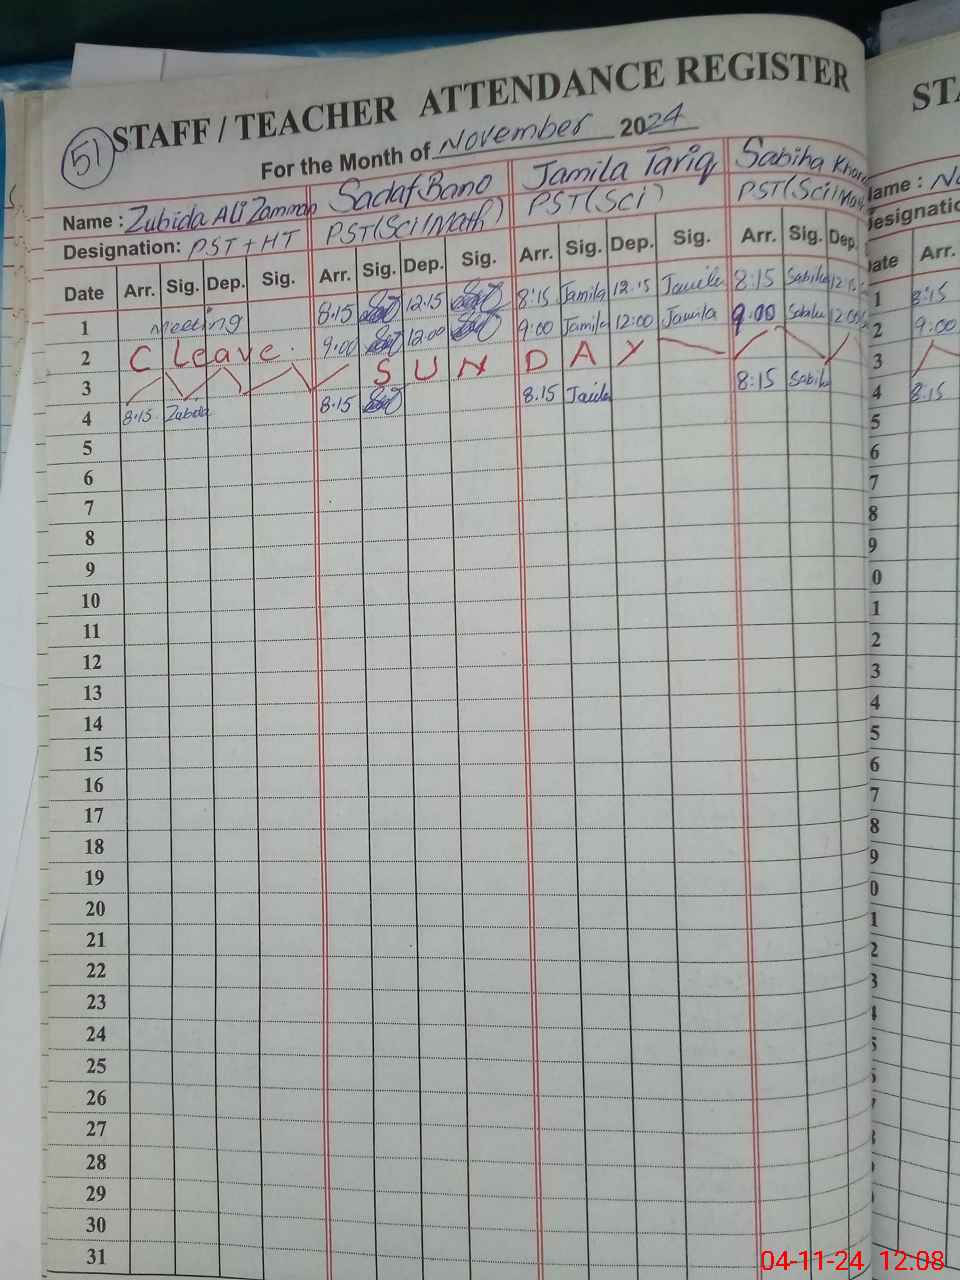 51 STAFF / TEACHER ATTENDANCE REGISTER
For the Month of November 2024
Name : Zubida Ali Zamman Sadaf Bano Jamila Tariq Sabiha
Designation: PST + HT PST(Sci/Math) PST(Sci) PST(Sci/Math
Date Arr. Sig. Dep. Sig. Arr. Sig. Dep. Sig. Arr. Sig. Dep. Sig. Arr. Sig. Dep.
1 Meeting 8:15 12:15 8:15 Jamila 12:15 Jamila 8:15 Sabiha
2 C Leave. 9:00 12:00 9:00 Jamila 12:00 Jamila 9:00 Sabiha 12:00
3 S U N D A Y
4 8:15 Zubida 8:15 8.15 8:15 Sabiha
5
6
7
8
9
10
11
12
13
14
15
16
17
18
19
20
21
22
23
24
25
26
27
28
29
30
31
STA
Name :
Designatio
Date Arr.
1 8:15
2 9:00
3
4 8:15
5
6
7
8
9
0
1
2
3
4
5
6
7
8
9
0
1
2
3
04-11-24 12:08